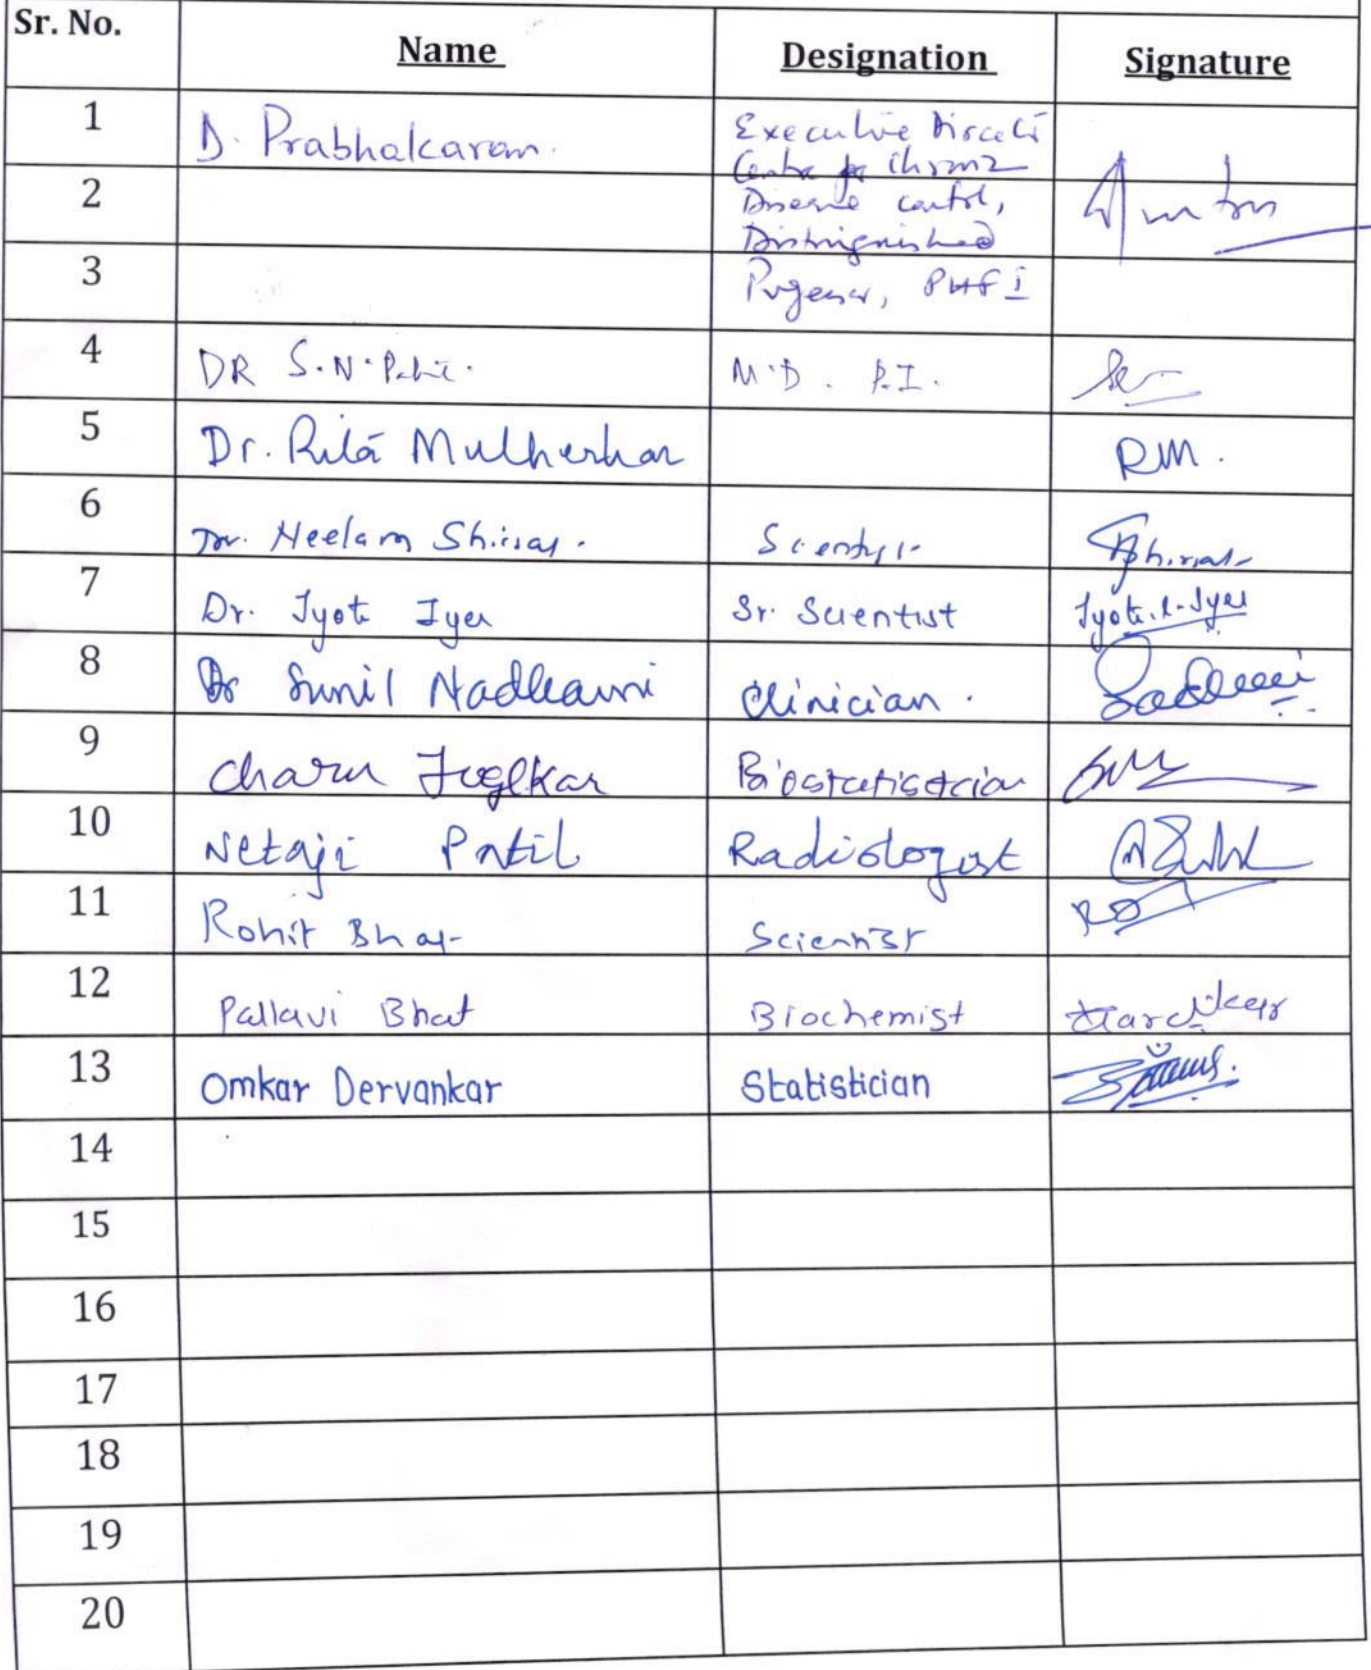 Sr. No. Name Designation Signature
1 D. Prabhakaran. Executive Director
Centre for Chronic
2 Disease control,
Distinguished
3 Professor, PHFI
4 DR S.N. M.D. P.I.
5 Dr. Rita Mulherkar RM.
6 Dr. Neelam Shirsat. Scientist
7 Dr. Jyoti Iyer Sr. Scientist Jyoti.R.Iyer
8 Dr Sunil Nadkarni Clinician.
9 Charu Joglkar Biostatistician
10 Netaji Patil Radiologist
11 Rohit Bhat Scientist
12 Pallavi Bhat Biochemist Hardikar
13 Omkar Dervankar Statistician
14
15
16
17
18
19
20